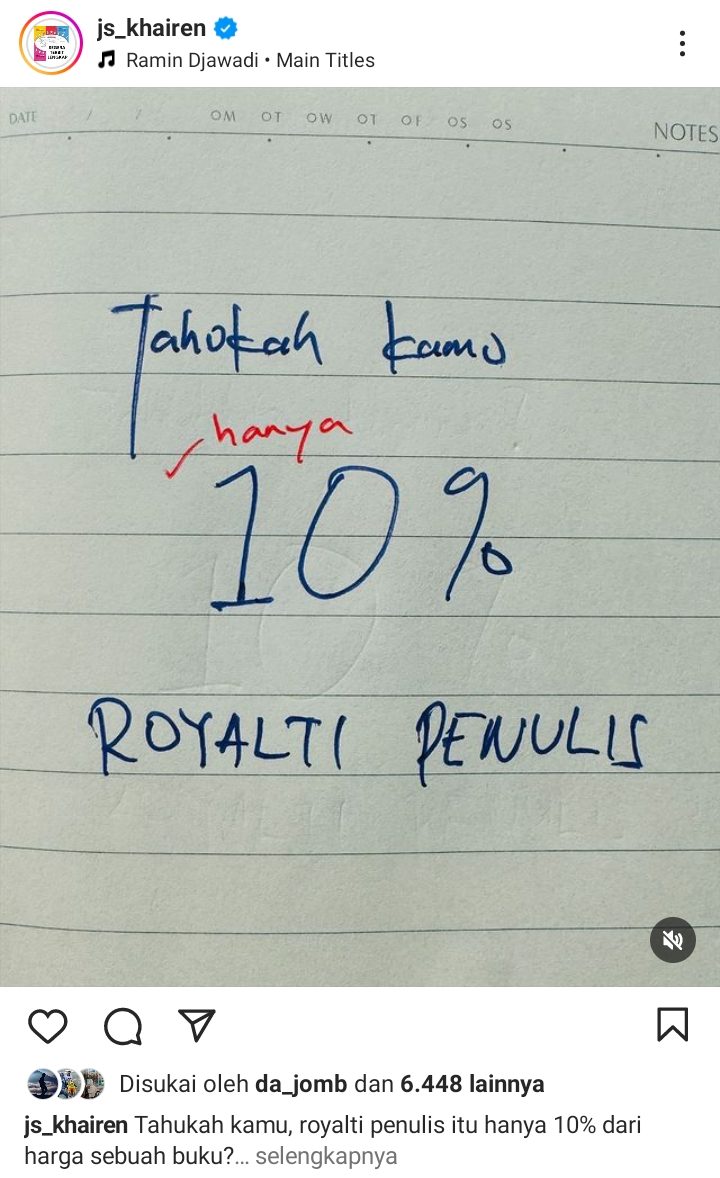 js_khairen
Ramin Djawadi • Main Titles
DATE / / OM OT OW OT OF OS OS NOTES
Tahukah kamu
hanya
10%
ROYALTI PENULIS
Disukai oleh da_jomb dan 6.448 lainnya
js_khairen Tahukah kamu, royalti penulis itu hanya 10% dari
harga sebuah buku?... selengkapnya